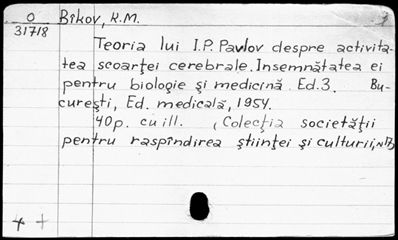 O Bîkov, K.M.
31718
Teoria lui I.P. Pavlov despre activita-
tea scoarţei cerebrale. Insemnătatea ei
pentru biologie şi medicină. Ed.3. Bu-
cureşti, Ed. medicală, 1954.
40p. cu ill. (Colecţia societăţii
pentru raspîndirea ştiinţei şi culturii,
4 +